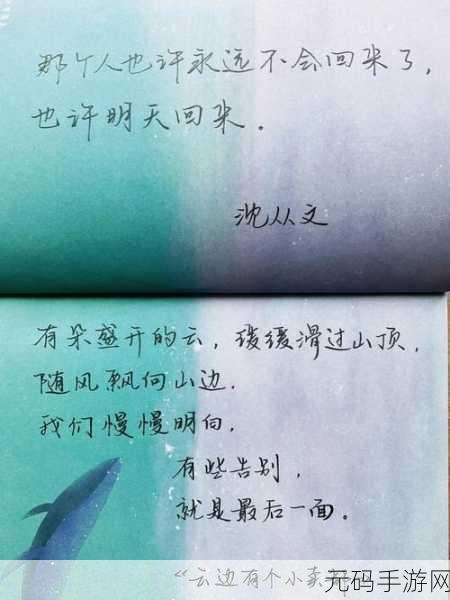 那个人也许永远不会回来了，
也许明天回来。
沈从文
有朵盛开的云，缓缓滑过山顶，
随风飘向山边．
我们慢慢明白，
有些告别，
就是最后一面。
“云边有个小卖部
元码手游网